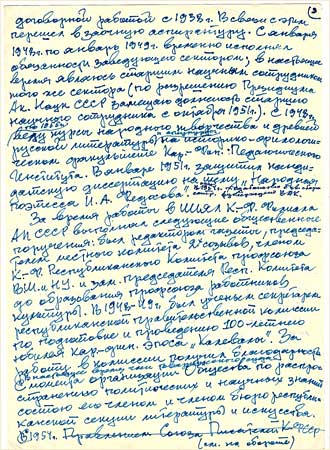 ③
договорной работой с 1938 г. В связи с этим
перешел в заочную аспирантуру. С января
1948 г. по январь 1949 г. временно исполнял
обязанности заведующего сектором; в настоящее
время являюсь старшим научным сотрудником
того же сектора (по разрешению Президиума
Ак. Наук СССР замещаю должность старшего
научного сотрудника с октября 1951 г.). С 1948 г.
веду курсы народного творчества и древней
русской литературы на историко-филологи-
ческом факультете Кар.-Фин. Педагогического
Института. В январе 1951 г. защитил канди-
датскую диссертацию на тему „Народная
поэтесса И. А. Федосова".
За время работы в ИЯЛИ К.-Ф. Филиала
АН СССР выполнял следующие общественные
поручения: был редактором газеты, председа-
телем местного комитета, членом
К.-Ф. Республиканского Комитета профсоюза
ВШ и НУ. и зам. председателя Респ. Комитета
до образования профсоюза работников
культуры. В 1948-49 г. был ученым секретарем
республиканской правительственной комиссии
по подготовке и проведению 100-летнего
юбилея Кар-фин. эпоса „Калевала". За
работу в комиссии получил благодарность
С момента организации Общества по распро-
странению политических и научных знаний
состою его членом и членом бюро республи-
канской секции литературы и искусства.
В 1954 г. Правлением Союза Писателей К-ФССР
(см. на обороте)